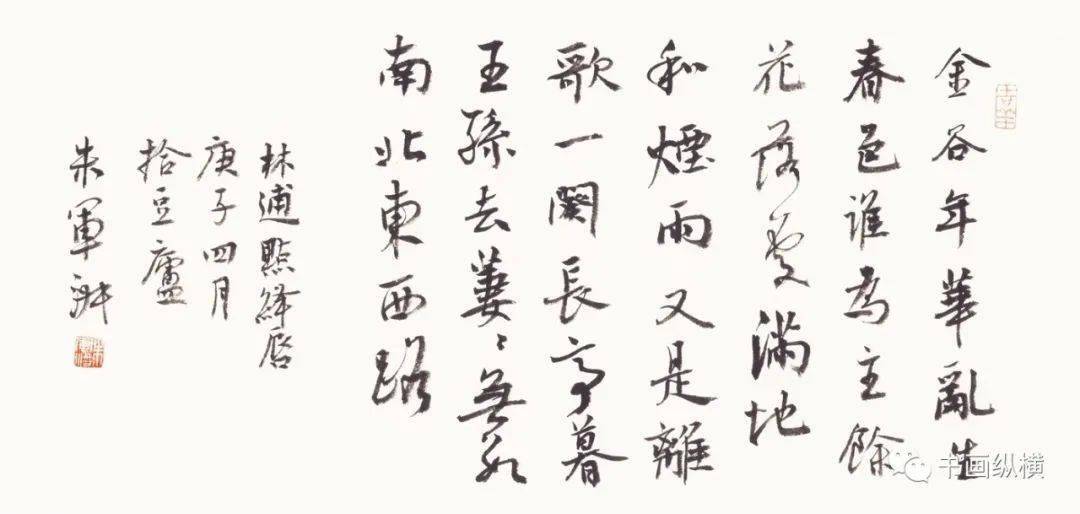 金谷年華亂生
春色誰為主餘
花落處滿地
和煙雨又是離
歌一闋長亭暮
王孫去萋〻無數
南北東西路
林逋點絳唇
庚子四月
拾豆廬
朱軍
书画纵横